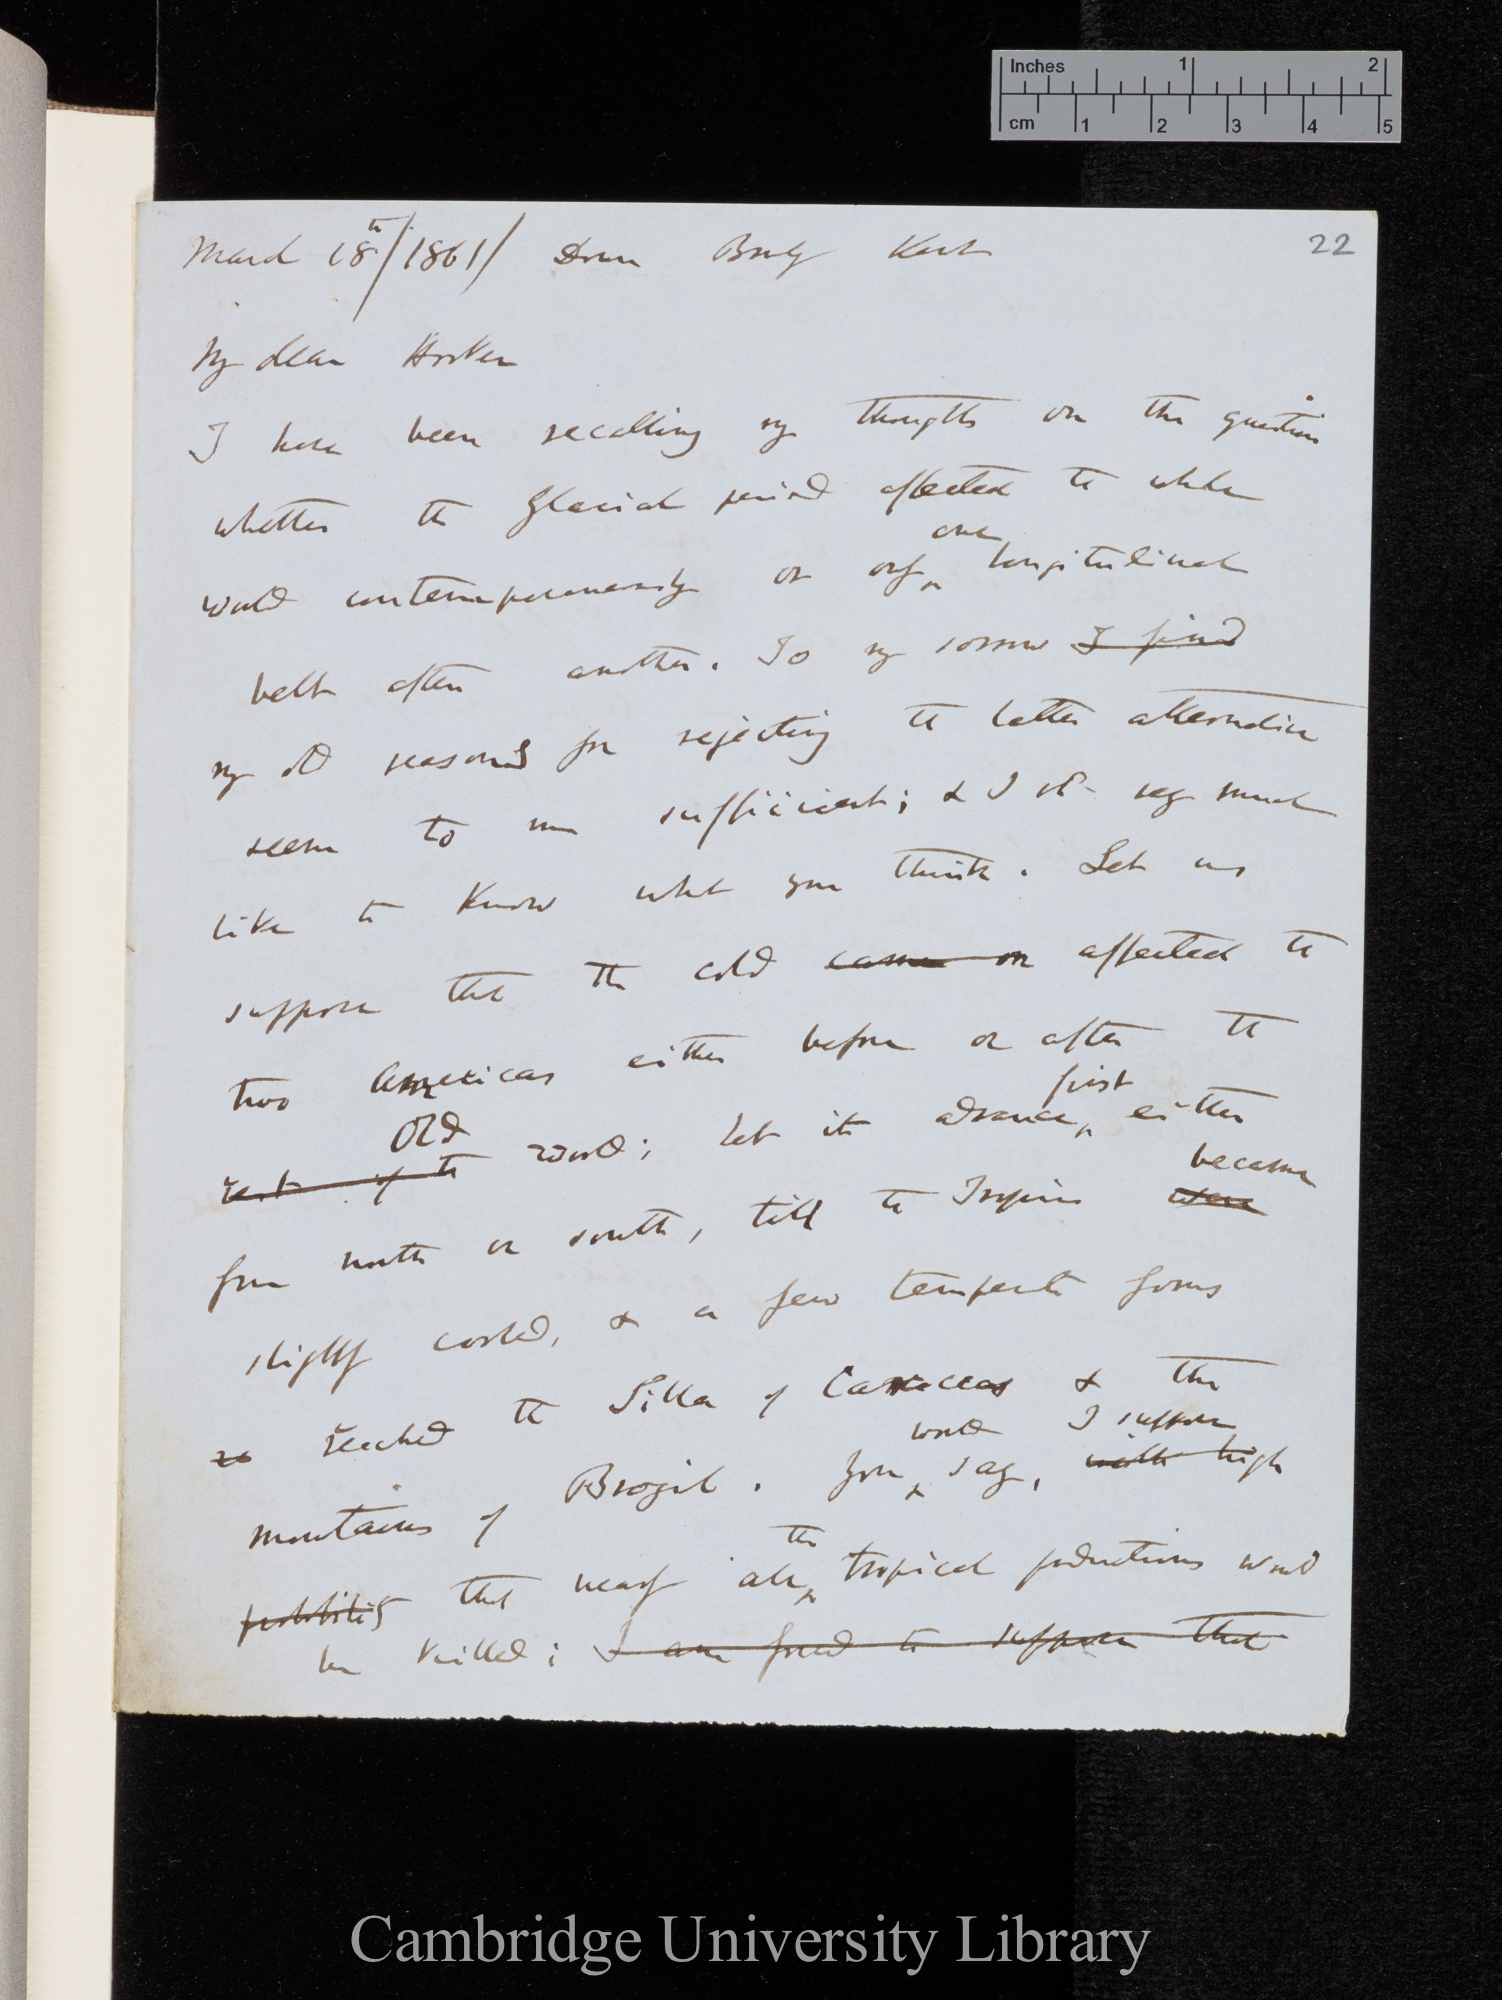 Inches 1 2
cm 1 2 3 4 5
22
March 18th/1861/ Down Bromley Kent
My dear Hooker
I have been recalling my thoughts on the question
whether the Glacial period affected the whole
world contemporaneously or only one longitudinal
belt after another. To my sorrow I find
my old reasons for rejecting the latter alternative
seem to me sufficient; & I shd very much
like to know what you think. Let us
suppose that the cold came on affected the
two Americas either before or after the
rest of the Old world; let it advance first either
from north or south, till the Tropics were became
slightly cooled, & a few temperate forms
re reached the Silla of Caraccas & the
mountains of Brazil. You would say, I suppose with high
probability that nearly all the tropical productions would
be killed; I am forced to suppose that
Cambridge University Library